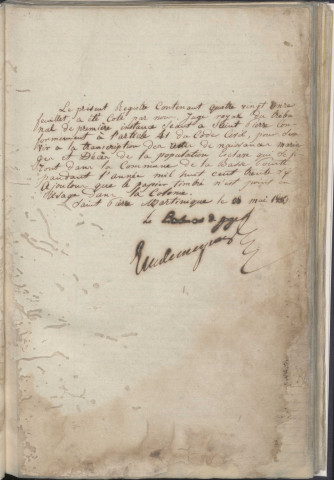 Le présent Registre Contenant quatre vingt
feuillets, a été Coté par nous, Juge royal du tribu
nal de première instance Séant à Saint Pierre con
formément à l'article 41 du Code Civil, pour ser
vir à la transcription des actes de naissance maria
ges et Décès de la population esclave qui se
feront dans la Commune de la Basse Pointe
pendant l'année mil huit cent trente
Ajoutons que le papier timbré n'est point en
Usage dans la Colonie.
Saint Pierre Martinique le mai
Le